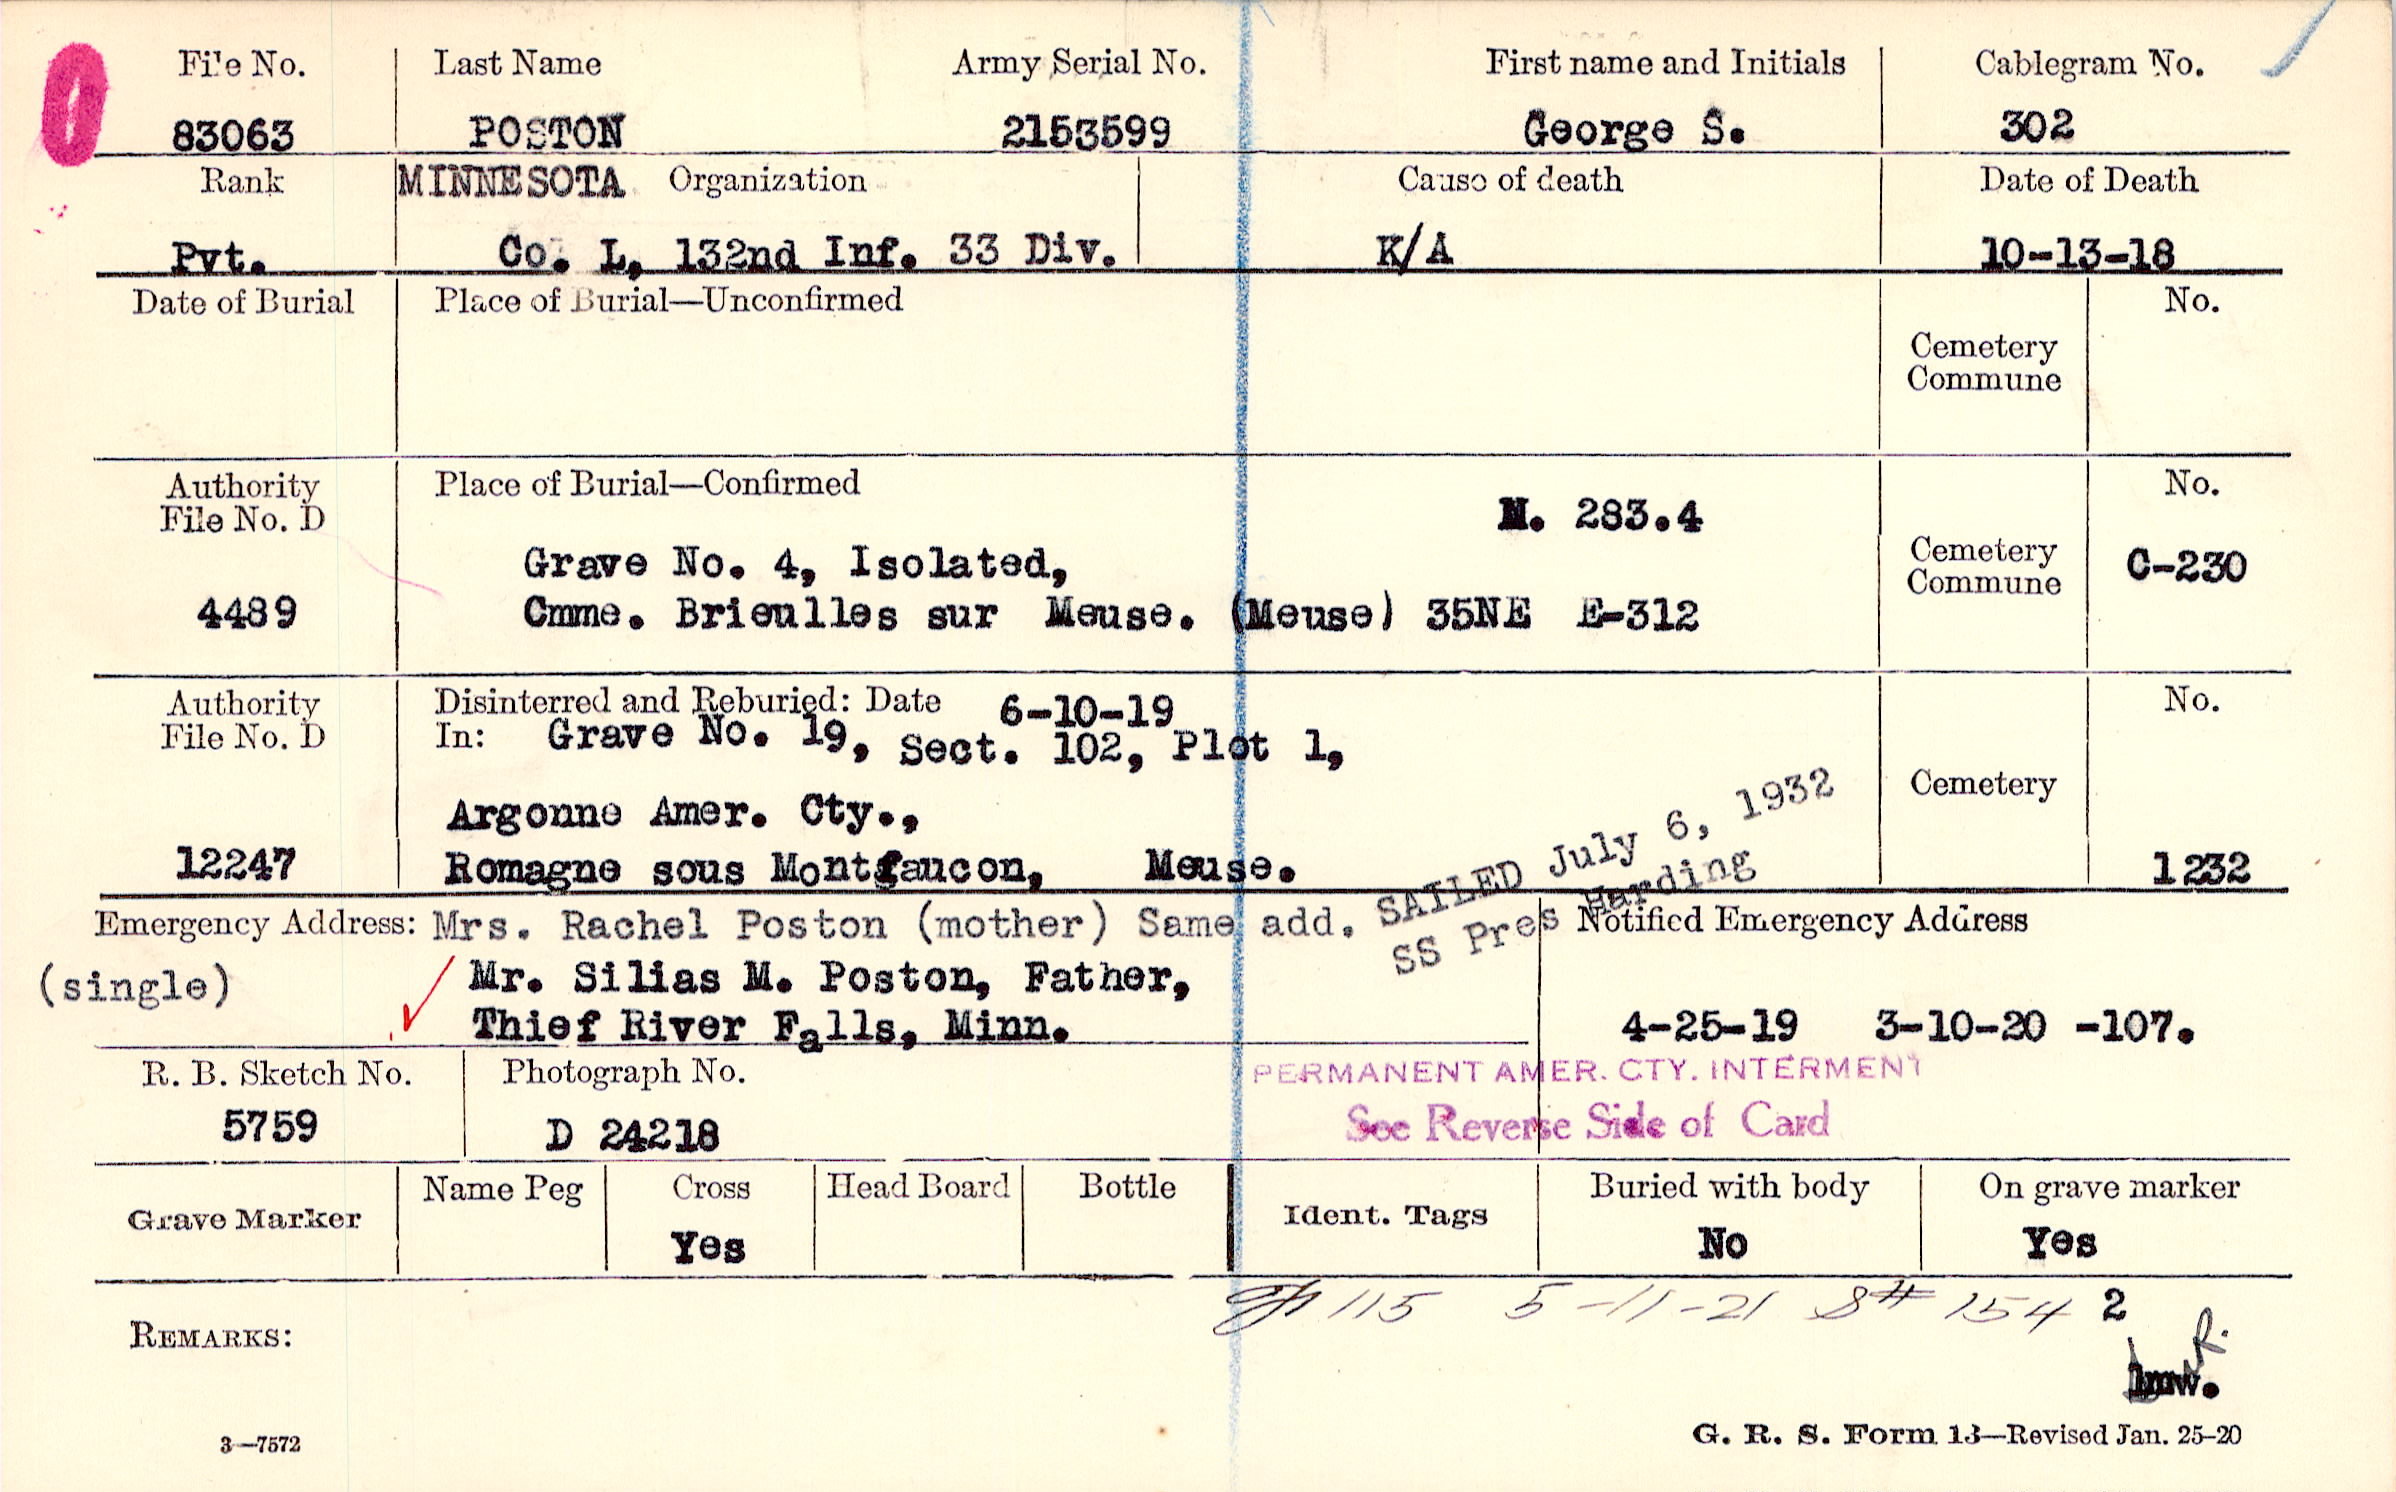 File No. Last Name Army Serial No. First name and Initials Cablegram No.
83063 POSTON 2153599 George S. 302
Rank MINNESOTA Organization Cause of death Date of Death
Pvt. Co. L, 132nd Inf. 33 Div. K/A 10-13-18
Date of Burial Place of Burial—Unconfirmed No.
Cemetery
Commune
Authority Place of Burial—Confirmed No.
File No. D N. 283.4
Grave No. 4, Isolated, Cemetery C-230
Commune
4489 Cmme. Brieulles sur Meuse. (Meuse) 35NE E-312
Authority Disinterred and Reburied: Date 6-10-19 No.
File No. D In: Grave No. 19, Sect. 102, Plot 1,
Cemetery
Argonne Amer. Cty.,
12247 Romagne sous Montfaucon, Meuse. 1232
SAILED July 6, 1932
SS Pres Harding
Emergency Address: Mrs. Rachel Poston (mother) Same add. Notified Emergency Address
(single) Mr. Silias M. Poston, Father,
Thief River Falls, Minn. 4-25-19 3-10-20 -107.
R. B. Sketch No. Photograph No. PERMANENT AMER. CTY. INTERMENT
5759 D 24218 See Reverse Side of Card
Grave Marker Name Peg Cross Head Board Bottle Ident. Tags Buried with body On grave marker
Yes No Yes
115 5-11-21 S# 154 2
REMARKS:
R.
lmw.
3—7572 G. R. S. Form 13—Revised Jan. 25-20